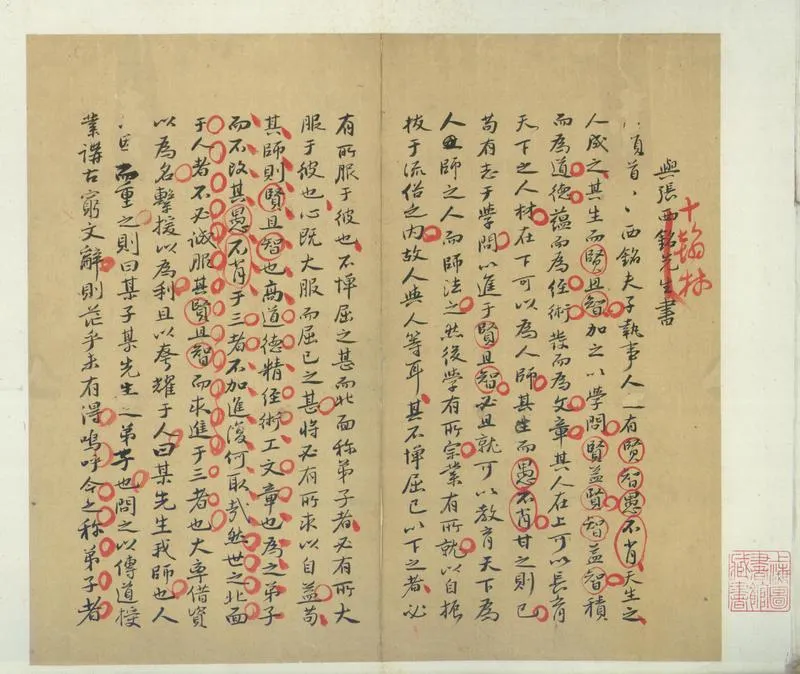 與張西銘先生書
頓首、、西銘夫子執事人一有賢智愚不肖天生之
人成之其生而賢且智加之以學問賢益賢智益智積
而為道德蘊而為經術發而為文章其人在上可以長育
天下之人材在下可以為人師其生而愚不肖甘之則已
苟有志于學問以進于賢且智必且就可以教育天下為
人師之人而師法之然後學有所宗業有所就以自振
拔于流俗之內故人與人等耳其不憚屈已以下之者必
有所服于彼也不憚屈之甚而北面称弟子者必有所大
服于彼也心既大服而屈已之甚將必有所求以自益苟
其師則賢且智也高道德精經術工文章也為之弟子
而不改其愚不肖于三者不加進復何取哉然世之北面
于人者不必誠服其賢且智而求進于三者也大率借資
以為名擊援以為利且以夸耀于人曰某先生我師也人
而重之則曰某子某先生之弟子也問之以傳道授
業講古窮文辭則茫乎未有得嗚呼今之称弟子者
上海圖書館藏書